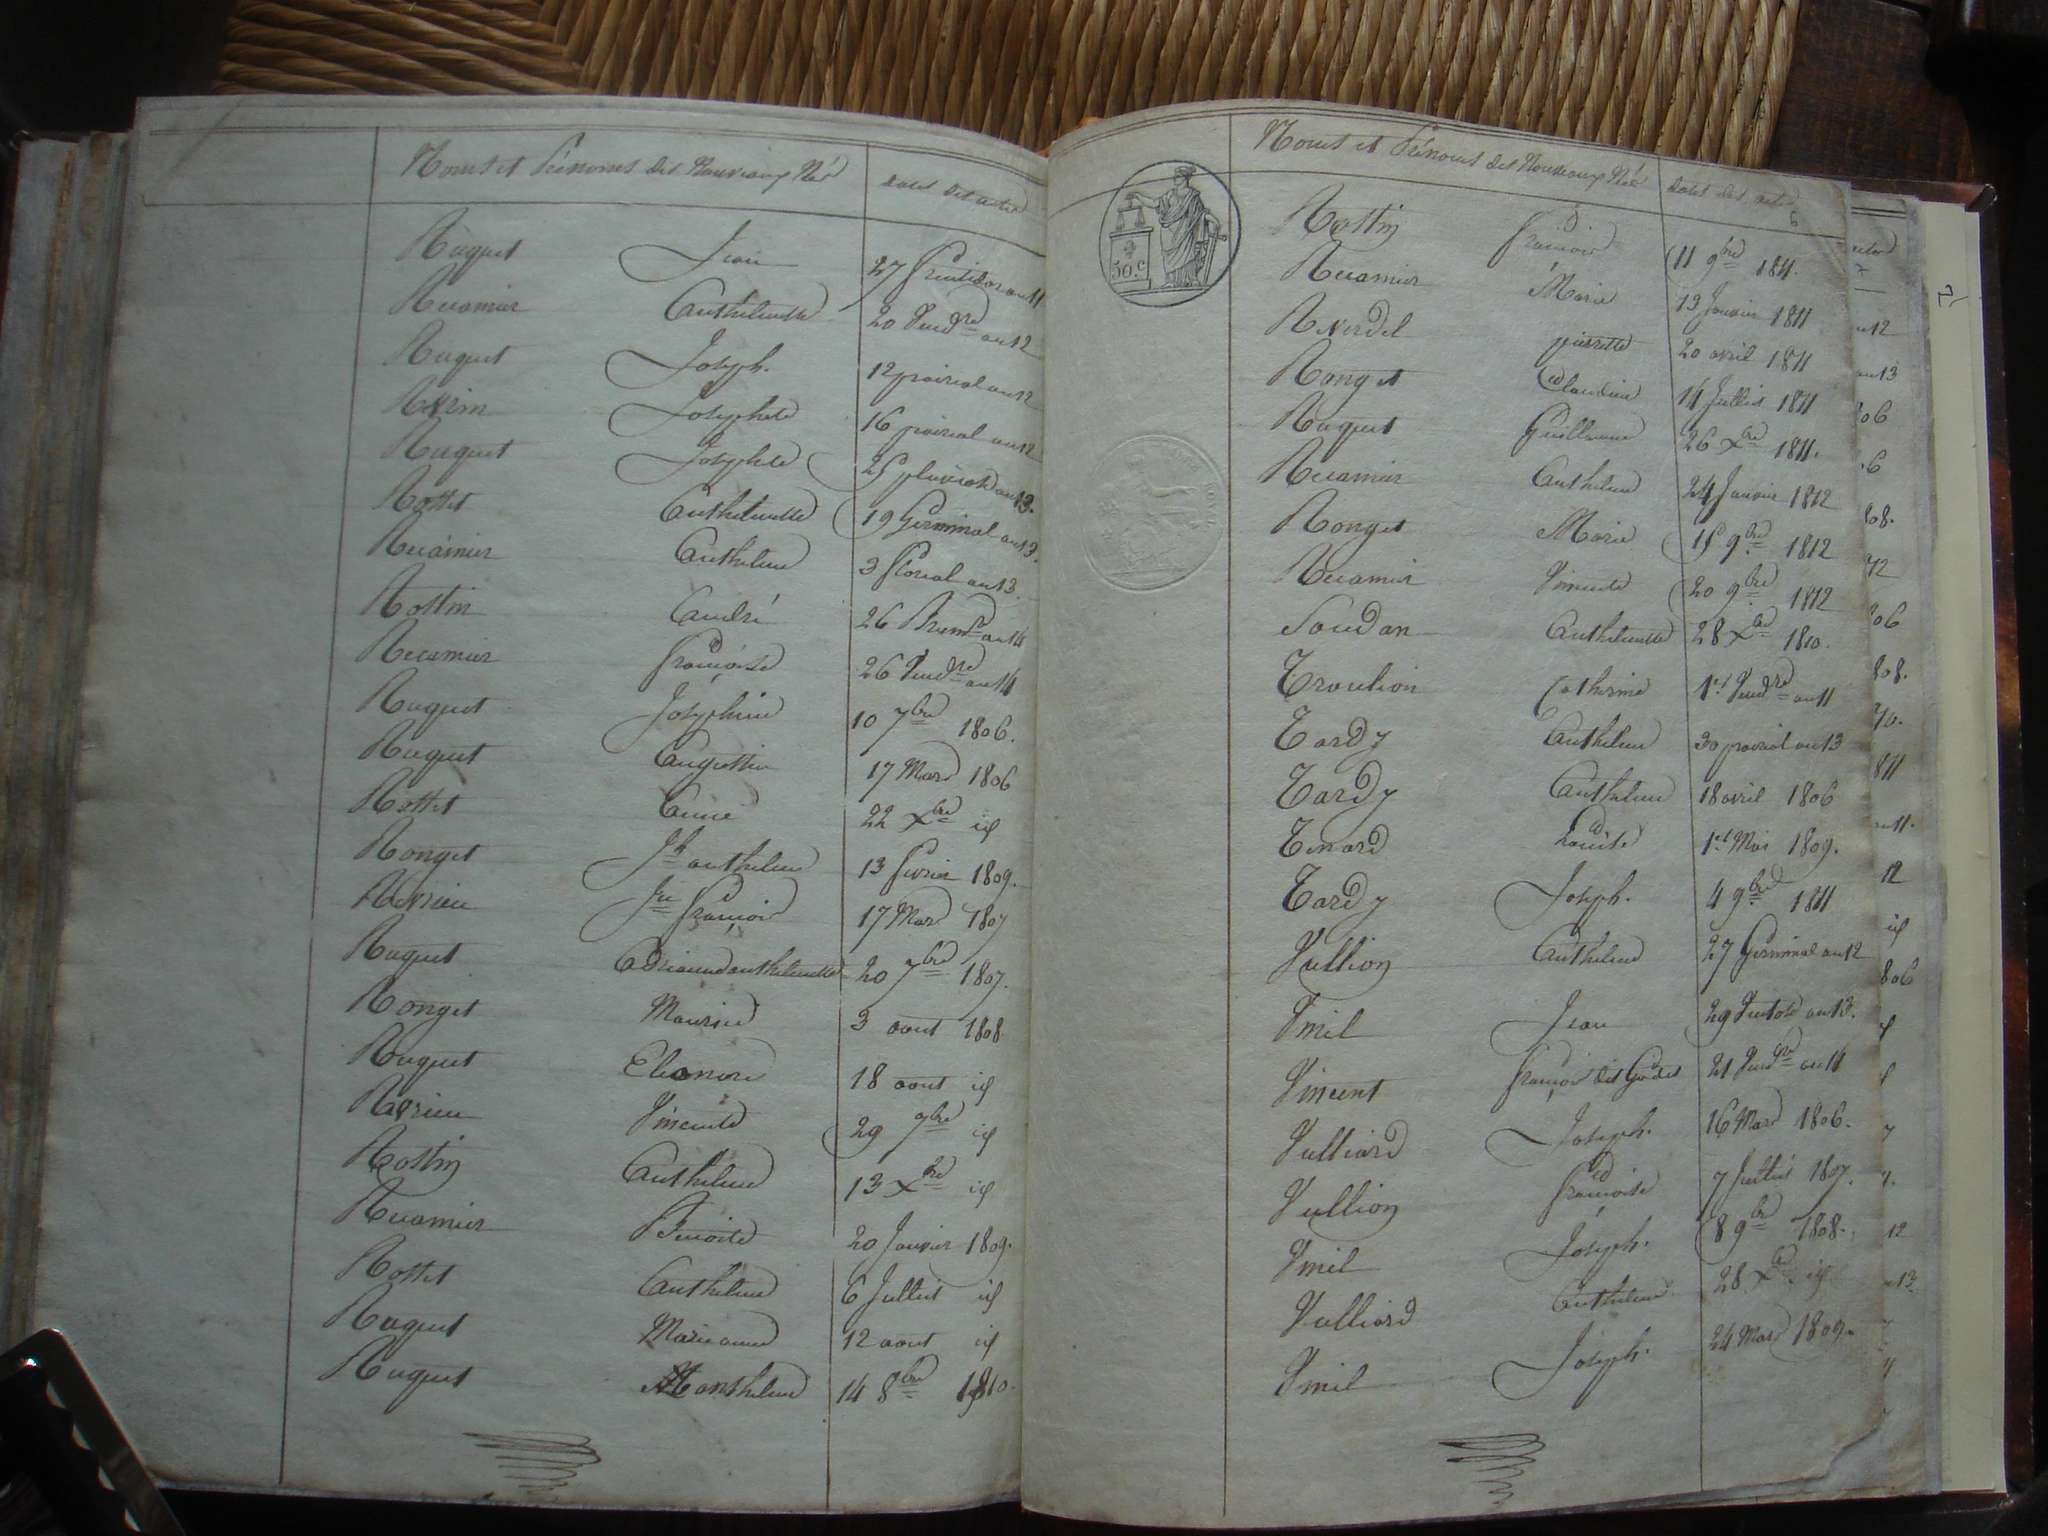 Noms et Prénoms des Nouveaux Nés dates des actes
Ruquet Jean 27 fructidor an 11
Recamier Anthelmette 20 Vend.re an 12
Ruquet Joseph. 12 prairial an 12
Josephte 16 prairial an 12
Ruquet Josephte 25 pluviose an 13.
Rosset Anthelmette 19 Germinal an 13.
Recamier Anthelme 3 floreal an 13.
Rostin André 26 Brum.re an 14
Recamier françoise 26 Vend.re an 14
Ruquet Josephine 10 7bre 1806.
Ruquet Augustin 17 Mars 1806
Rosset Anne 22 Xbre id
Ronget Jh anthelme 13 fevrier 1809.
françois 17 Mars 1807
Ruquet anthelmette 20 7bre 1807.
Ronget Maurice 3 aout 1808
Ruquet Eleonore 18 aout id
Vincente 29 7bre id
Rostin Anthelme 13 Xbre id
Recamier Benoite 20 Janvier 1809.
Rosset Anthelme 6 Juillet id
Ruquet Marieanne 12 aout id
Ruquet anthelme 14 8bre 1810.
Noms et Prénoms des Nouveaux Nés dates des actes
6
50.c
Rostin françois 11 9bre 1811.
Recamier Marie 13 Janvier 1811
Reverdel pierrette 20 avril 1811
Ronget Claudine 14 Juillet 1811
Ruquet Guillaume 26 Xbre 1811.
Recamier Anthelme 24 Janvier 1812
Ronget Marie 15 9bre 1812
Recamier Vincente 20 9bre 1812
Soudan Anthelmette 28 Xbre 1810.
Troulion Catherine 1er Vend.re an 11
Tardy Anthelme 30 prairial an 13
Tardy Anthelme 18 avril 1806
Tenard Louise 1er Mai 1809.
Tardy Joseph. 4 9bre 1811
Vullion Anthelme 27 Germinal an 12
Vmil Jean 29 Ventose an 13.
Vincent françois des Godes 21 Vend.re an 14
Vulliard Joseph. 16 Mars 1806.
Vullion françoise 7 Juillet 1807.
Vmil Joseph. 8 9bre 1808.
Vulliard Anthelme 28 Xbre id
Vmil Joseph. 24 Mars 1809.